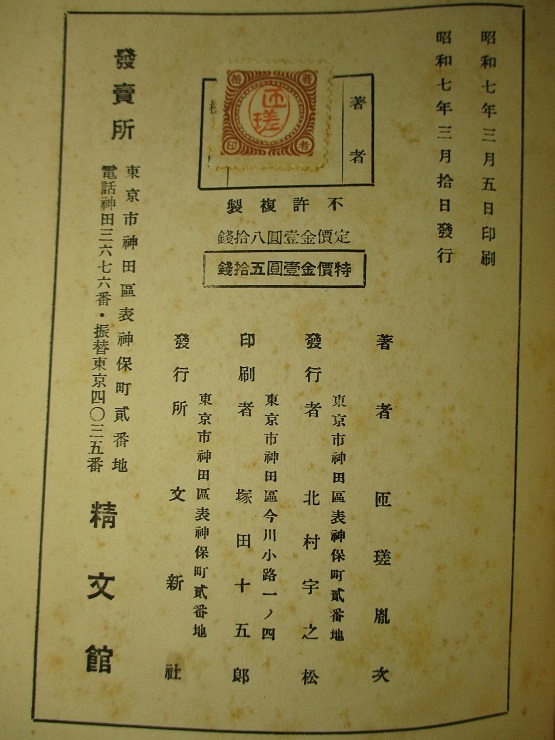 昭和七年三月五日印刷
昭和七年三月拾日發行
著者
匝瑳
不許複製
定價金壹圓八拾錢
特價金壹圓五拾錢
著者 匝瑳胤次
東京市神田區表神保町貳番地
發行者 北村宇之松
東京市神田區今川小路一ノ四
印刷者 塚田十五郎
東京市神田區表神保町貳番地
發行所 文新社
發賣所
東京市神田區表神保町貳番地
電話神田三六七六番・振替東京四〇三二五番
精文館